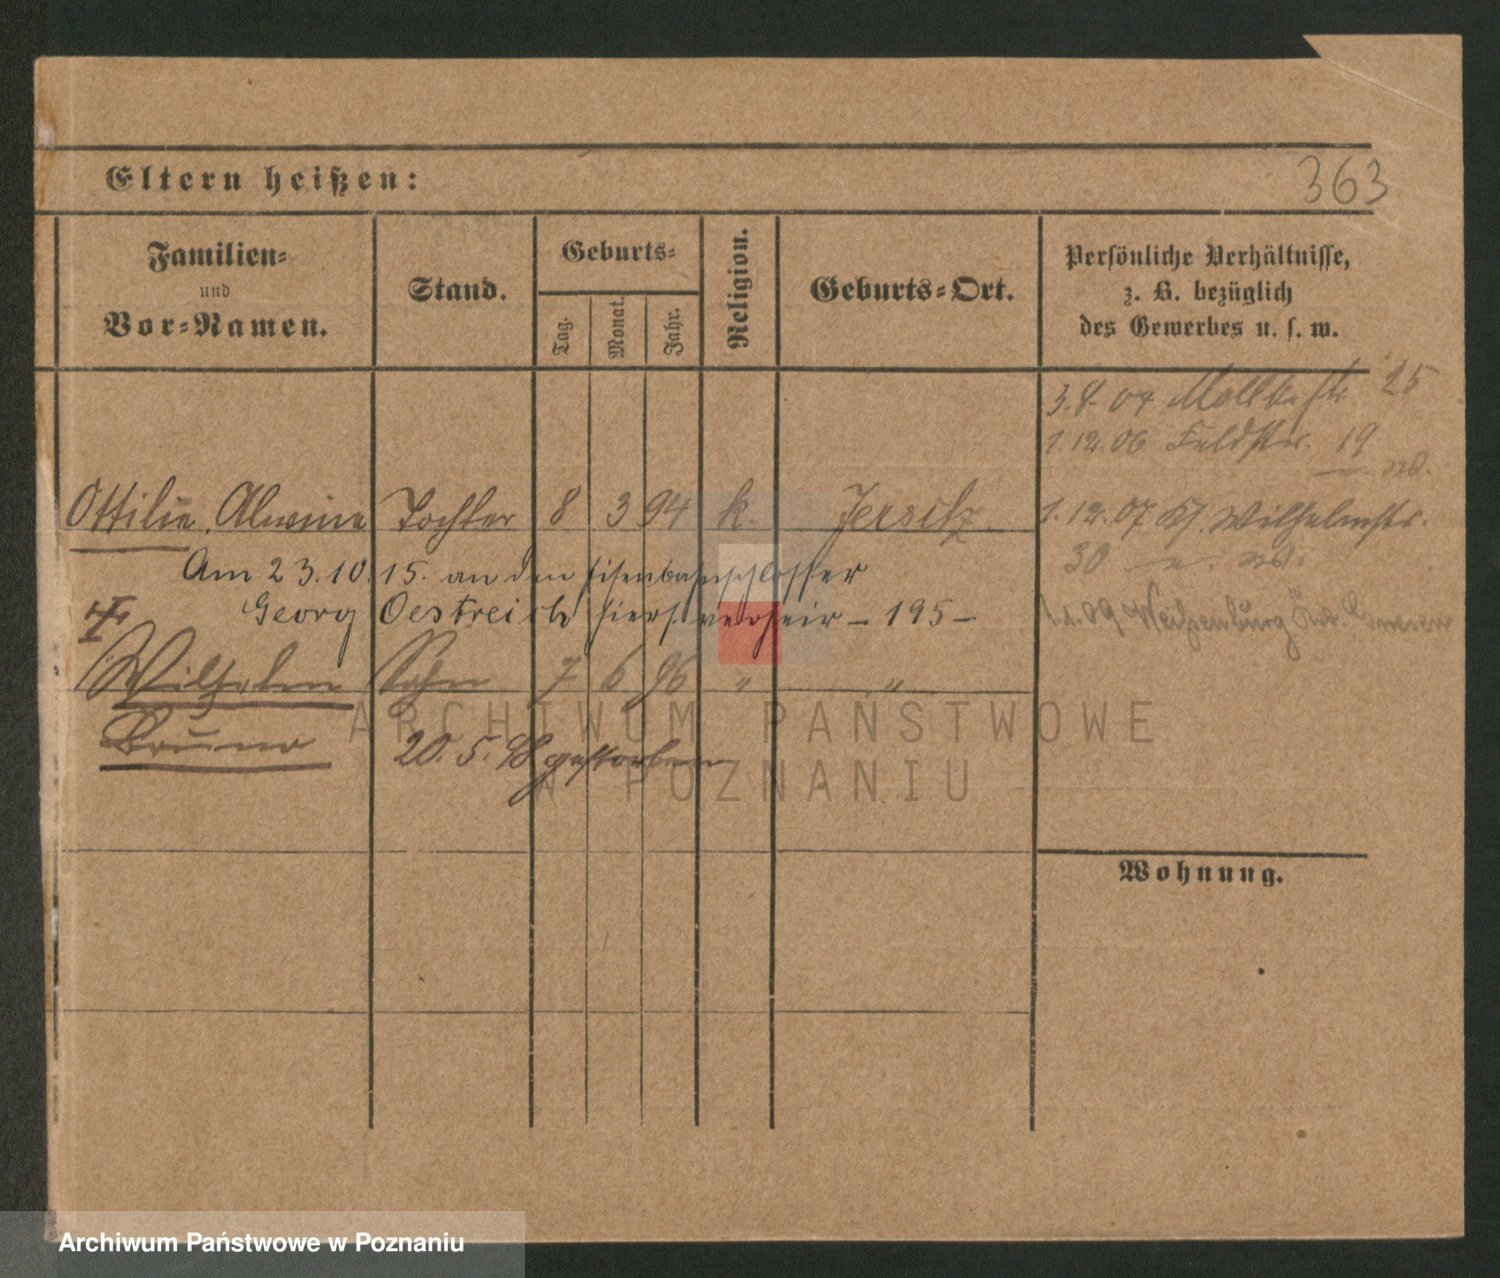 Eltern heißen:
363
Familien-
und
Vor-Namen.
Stand.
Geburts-
Tag.
Monat.
Jahr.
Religion.
Geburts-Ort.
Persönliche Verhältnisse,
z. B. bezüglich
des Gewerbes u. s. w.
3.8.04 Moltkestr 25
1.12.06 Feldstr. 19
Ottilie, Alwine Tochter 8 3 94 k. Jersitz
1.12.07 Wilhelmstr.
30
Am 23.10.15. an den Eisenbahnschlosser
Georg Oestreich hiers. verheir – 195 –
1.1.09
Wilhelm Sohn 7 6 96 " "
Bruno 20.5.98 gestorben
Wohnung.
ARCHIWUM PAŃSTWOWE
W POZNANIU
Archiwum Państwowe w Poznaniu